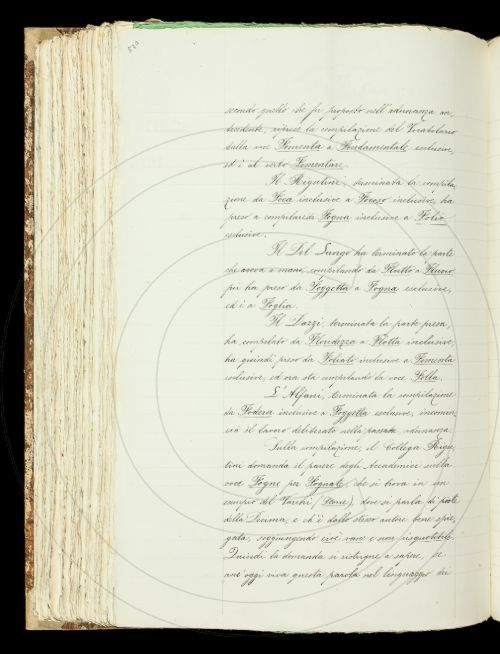 secondo quello che fu proposto nell'adunanza an-
tecedente, riprese la compilazione del Vocabolario
dalla voce Fomenta a Fondamentale esclusive,
ed è al verbo Fomentare.
Il Rigutini, terminata la compila-
zione da Foca inclusive a Focoso inclusive, ha
preso a compilare da Fogna inclusive a Folio
esclusive.
Il Del Lungo ha terminato la parte
che aveva a mano, compilando da Flutto a
poi ha preso da Foggetta a Fogna esclusive,
ed è a Foglia.
Il Dazzi, terminata la parte presa,
ha compilato da Floridezza a Flotta inclusive,
ha quindi preso da Foliato inclusive a Fomenta
esclusive, ed ora sta compilando la voce Folla.
L'Alfani, terminata la compilazione
da Fodera inclusive a Foggetta esclusive, incomin-
cerà il lavoro deliberato nella passata adunanza.
Sulla compilazione, il Collega Rigu-
tini domanda il parere degli Accademici sulla
voce Fogne per Fognate, che si trova in un
esempio del Varchi (Storie), dove si parla di poste
della Decima, e ch'è dallo stesso autore bene spie-
gata, soggiungendo cioè vane e non risquotibili.
Quindi la domanda si restrigne a sapere, se
anc'oggi viva questa parola nel linguaggio dei